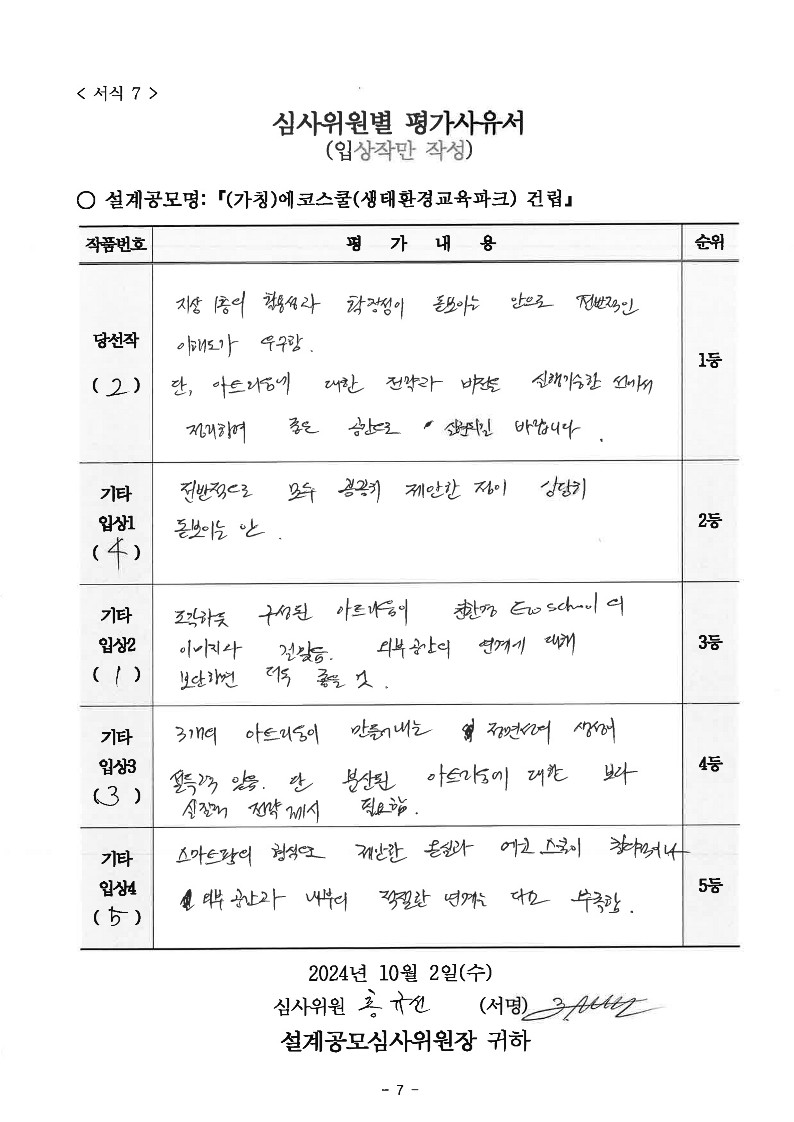 < 서식 7 >
심사위원별 평가사유서
(입상작만 작성)
○ 설계공모명:『(가칭)에코스쿨(생태환경교육파크) 건립』
작품번호 평 가 내 용 순위
당선작
( 2 )
지상 1층의 활용성과 확장성이 돋보이는 안으로 전반적인
이해도가 우수함.
단, 아트리움에 대한 전략과 비젼을 실행가능한 선에서
정리하여 좋은 공간으로 바랍니다.
1등
기타
입상1
( 4 )
전반적으로 모두 꼼꼼히 제안한 점이 상당히
돋보이는 안.
2등
기타
입상2
( 1 )
조각하듯 구성된 아트리움이 친환경 Eco school의
이미지와 걸맞음. 외부공간의 연계에 대해
보단하면 더욱 좋을 것.
3등
기타
입상3
( 3 )
3개의 아트리움이 만들어내는 정면성이
설득력 있음. 단 분산된 아트리움에 대한 보다
전략 제시 필요함.
4등
기타
입상4
( 5 )
스마트팜의 형식으로 제안한 온실과 에코스쿨이
외부공간과 내부의 적절한 연계는 다소 부족함.
5등
2024년 10월 2일(수)
심사위원 홍규선 (서명)
설계공모심사위원장 귀하
- 7 -